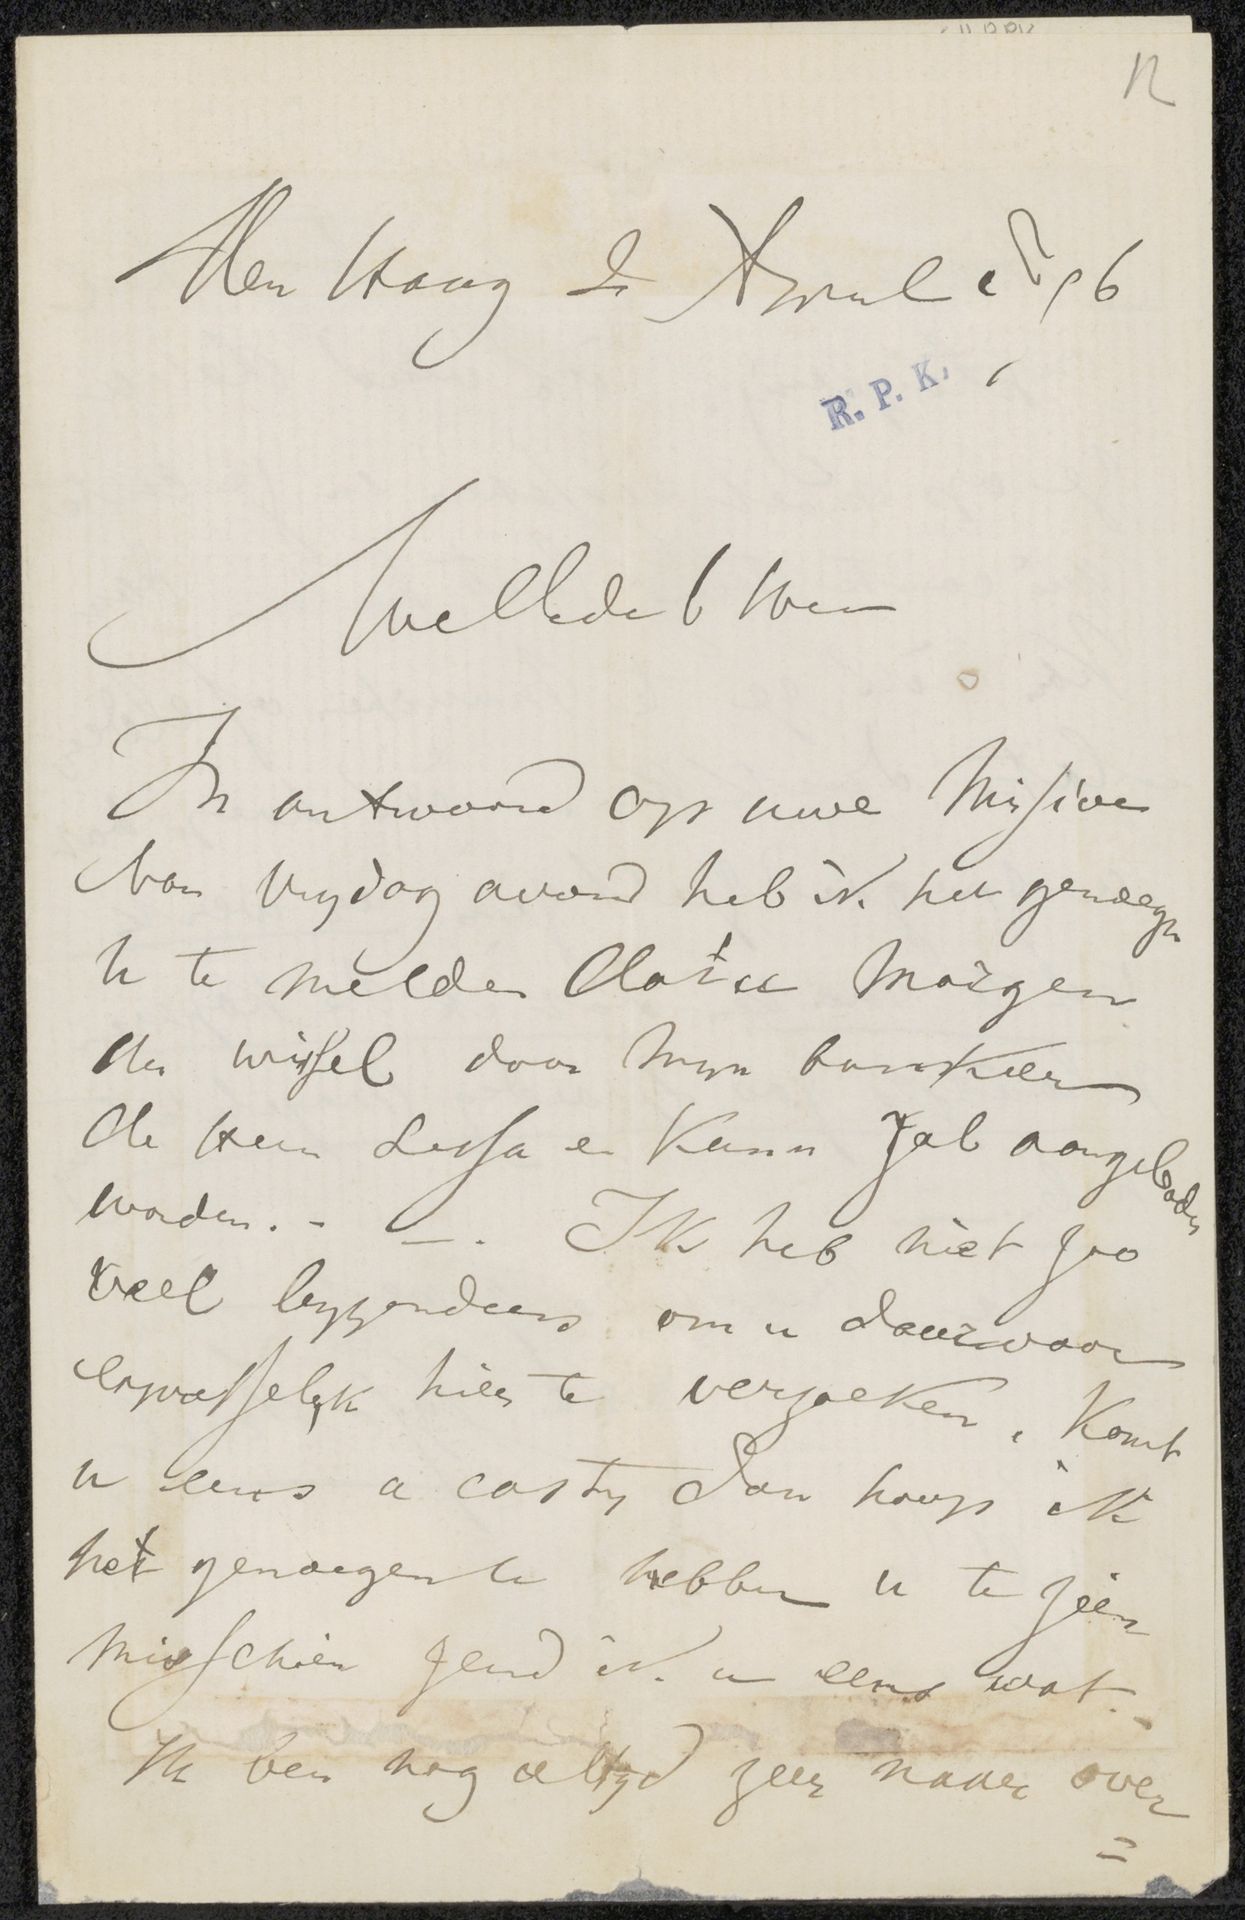 12
Den Haag 2 April 1896
R. P. K.
WelEdele Heer
In antwoord op uwe Missive
van Vrydag avond heb ik het genoegen
U te melden dat u Morgen
de wissel door myn bankier
de Heer Lissa en Kann zal aangeboden
worden. - —. Ik heb niet zoo
veel byzonders om u daarvoor
expresselyk hier te verzoeken, Komt
u eens a costy dan hoop ik
het genoegen te hebben u te zien
misschien zend ik u eens wat. -
Ik ben nog altyd zeer naar over
=